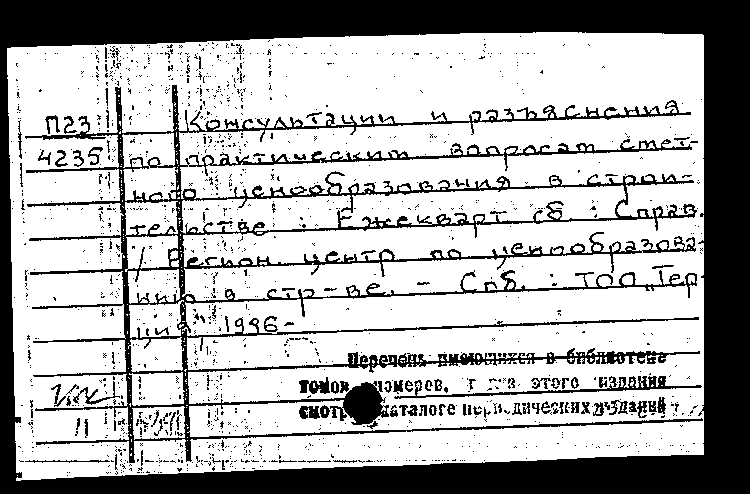 П23 Консультации и разъяснения
4235 по практическим вопросам смет-
ного ценообразования в строи-
тельстве : Ежекварт. сб : Справ.
/ Регион. центр по ценообразова-
нию в стр-ве. - Спб. : ТОО „Тер-
ция", 1996-
Перечень имеющихся в библиотеке
томов номеров, этого издания
каталоге периодических изданий
11